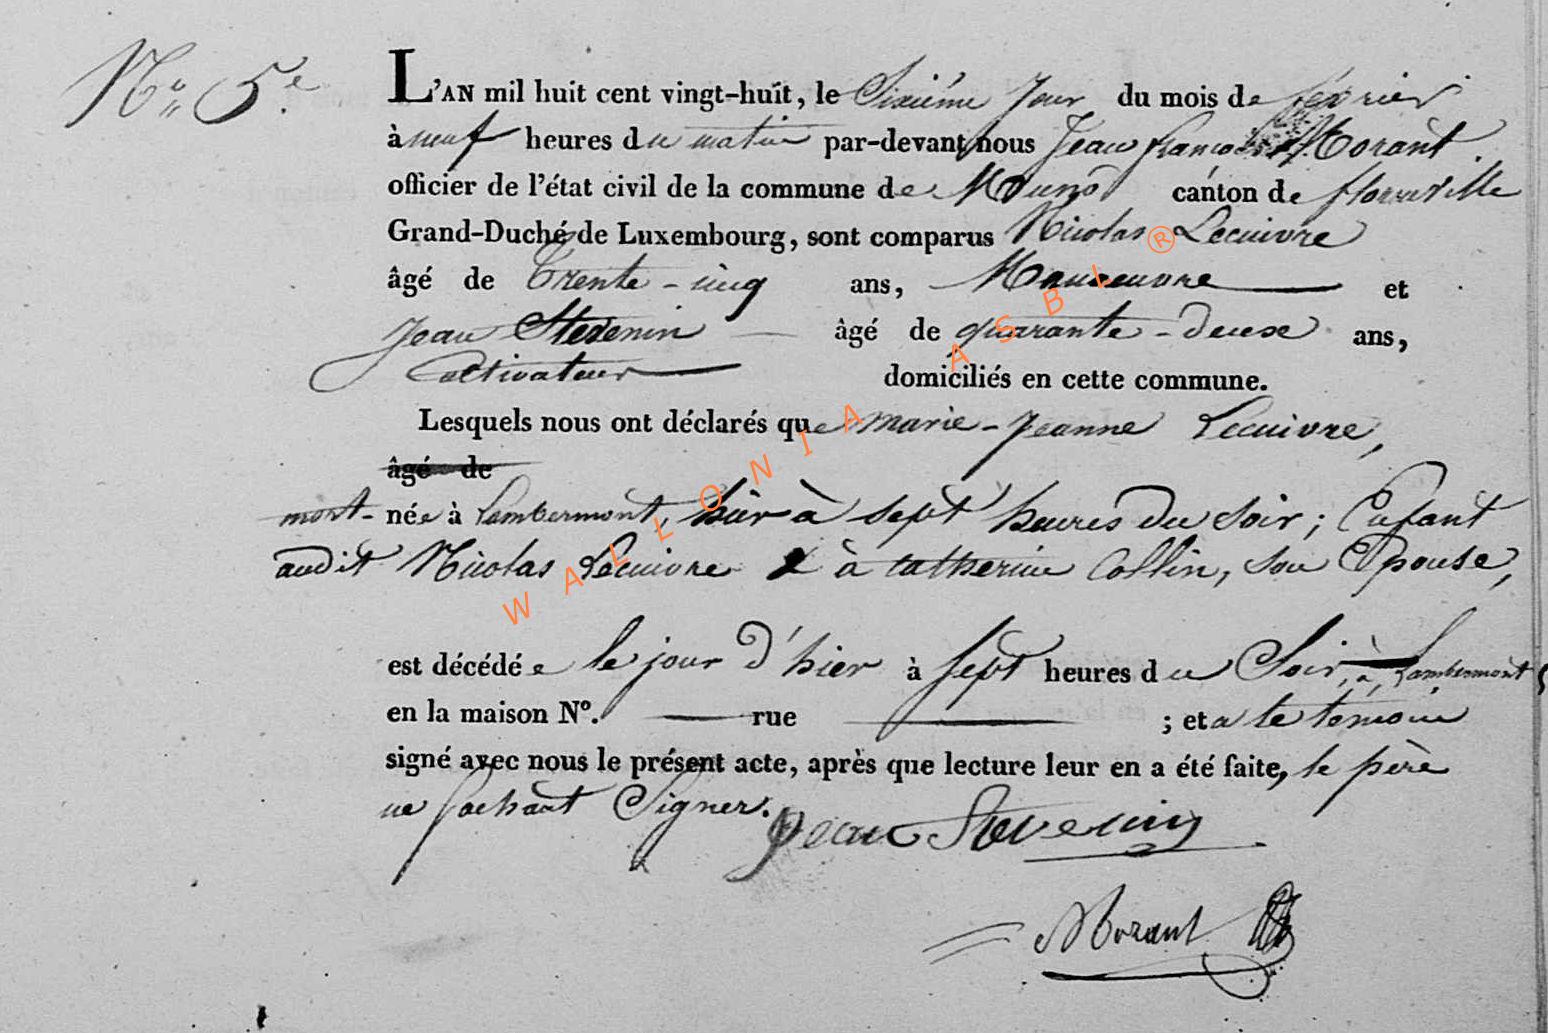 No. 5e.
L'AN mil huit cent vingt-huit, le Sixième Jour du mois de février
à neuf heures du matin par-devant nous Jean françois Morant
officier de l'état civil de la commune de Muno canton de florenville
Grand-Duché de Luxembourg, sont comparus Nicolas Lecuivre
âgé de Trente-cinq ans, Manoeuvre et
Jean Stevenin âgé de quarante-deux ans,
Cultivateur domiciliés en cette commune.
Lesquels nous ont déclarés que marie-Jeanne Lecuivre,
âgé de
mort-née à Lambermont, hier à sept heures du soir; Enfant
audit Nicolas Lecuivre & à catherine Collin, son Epouse,
est décédée le jour d'hier à sept heures du Soir, à Lambermont
en la maison No. rue ; et a le temoin
signé avec nous le présent acte, après que lecture leur en a été faite, le père
ne Sachant Signer.
Jean Stevenin
Morant
WALLONIA ASBL ®